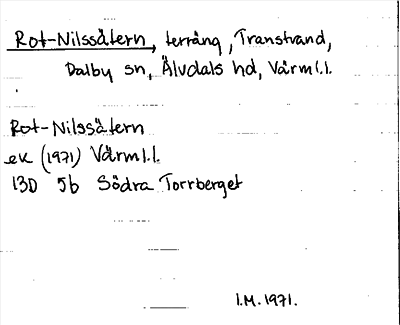 Rot-Nilssätern, terräng, Transtrand,
Dalby sn, Älvdals hd, Värml.l.
Rot-Nilssätern
ek (1971) Värml.l.
13D 5b Södra Torrberget
I.M. 1971.